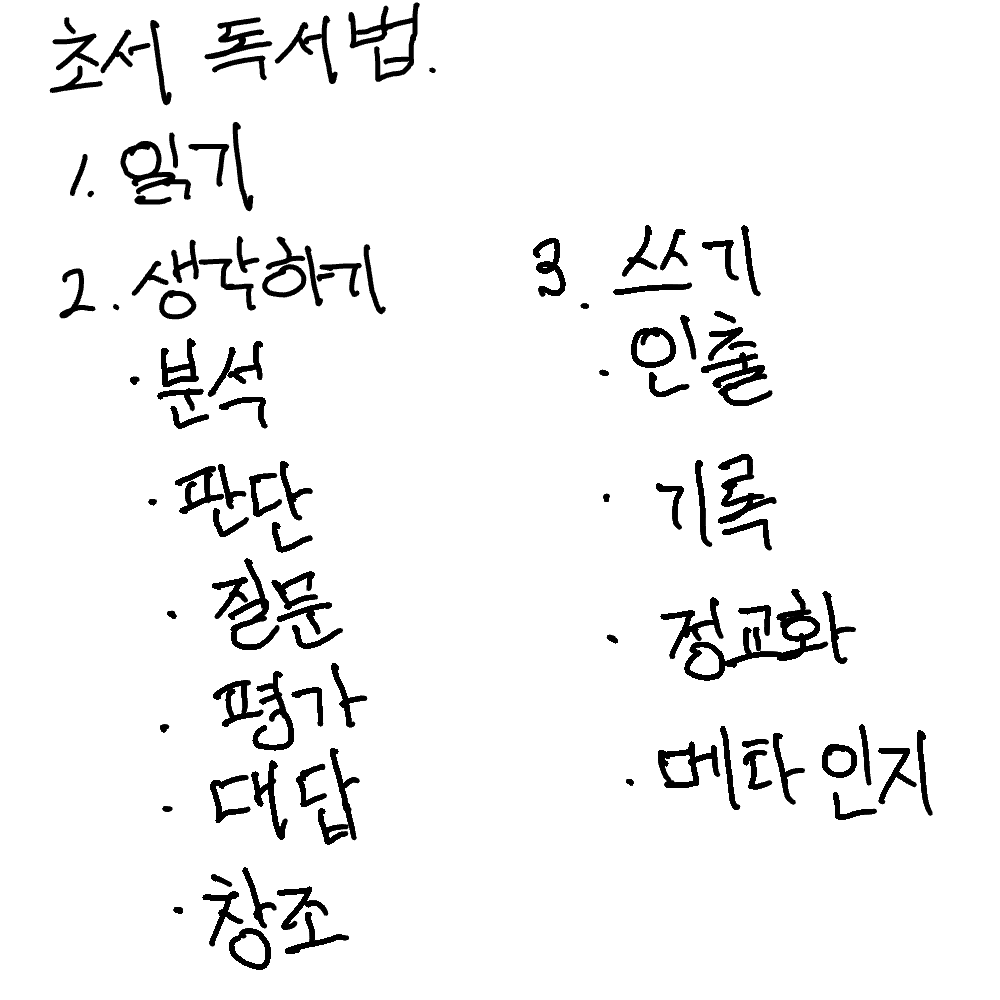 초서 독서법.
1. 읽기
2. 생각하기
· 분석
· 판단
· 질문
· 평가
· 대답
· 창조
3. 쓰기
· 인출
· 기록
· 정교화
· 메타인지